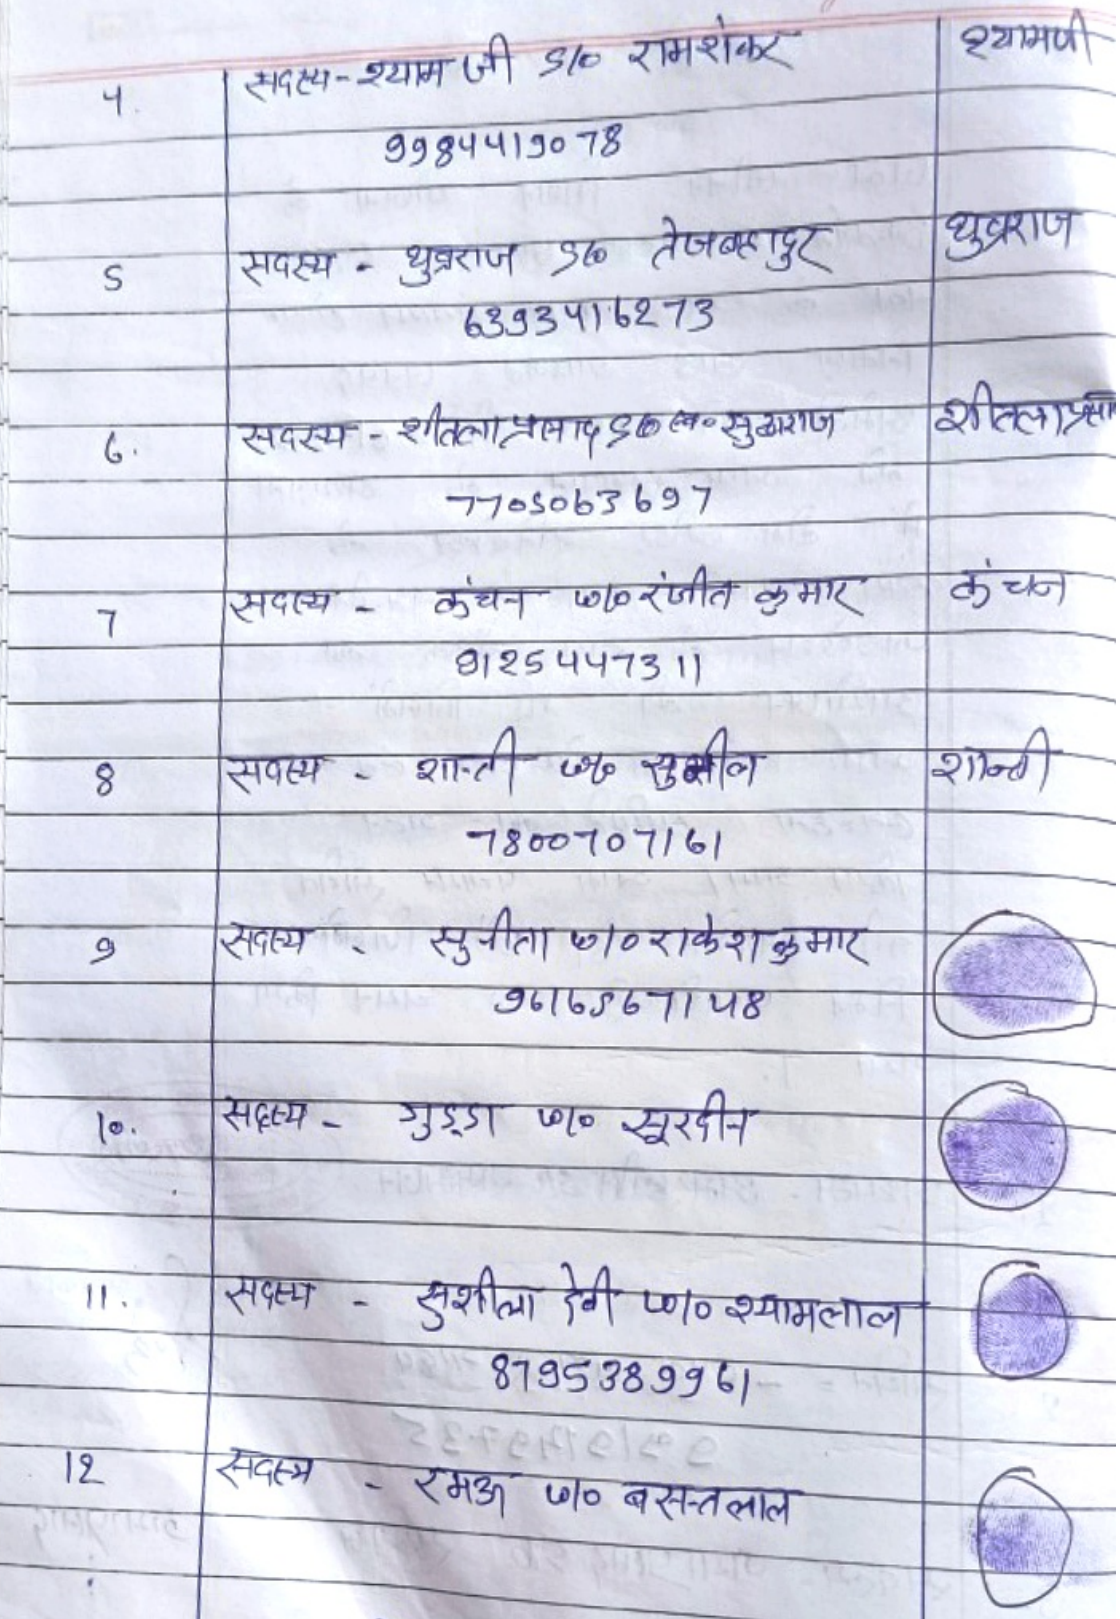 4. सदस्य - श्याम जी S/o रामशंकर श्यामजी
9984419078
5 सदस्य - ध्रुवराज S/o तेजबहादुर ध्रुवराज
6393416273
6. सदस्य - शीतला प्रसाद S/o स्व० सुखराज शीतला प्रसा
7705063697
7 सदस्य - कंचन w/o रंजीत कुमार कंचन
9125447311
8 सदस्य - शान्ती w/o सुशील शान्ती
7800707161
9 सदस्य - सुनीता w/o राकेश कुमार
9616567148
10. सदस्य - गुड्डा w/o सूरदीन
11. सदस्य - सुशीला देवी w/o श्यामलाल
8795389961
12 सदस्य - w/o बसन्तलाल